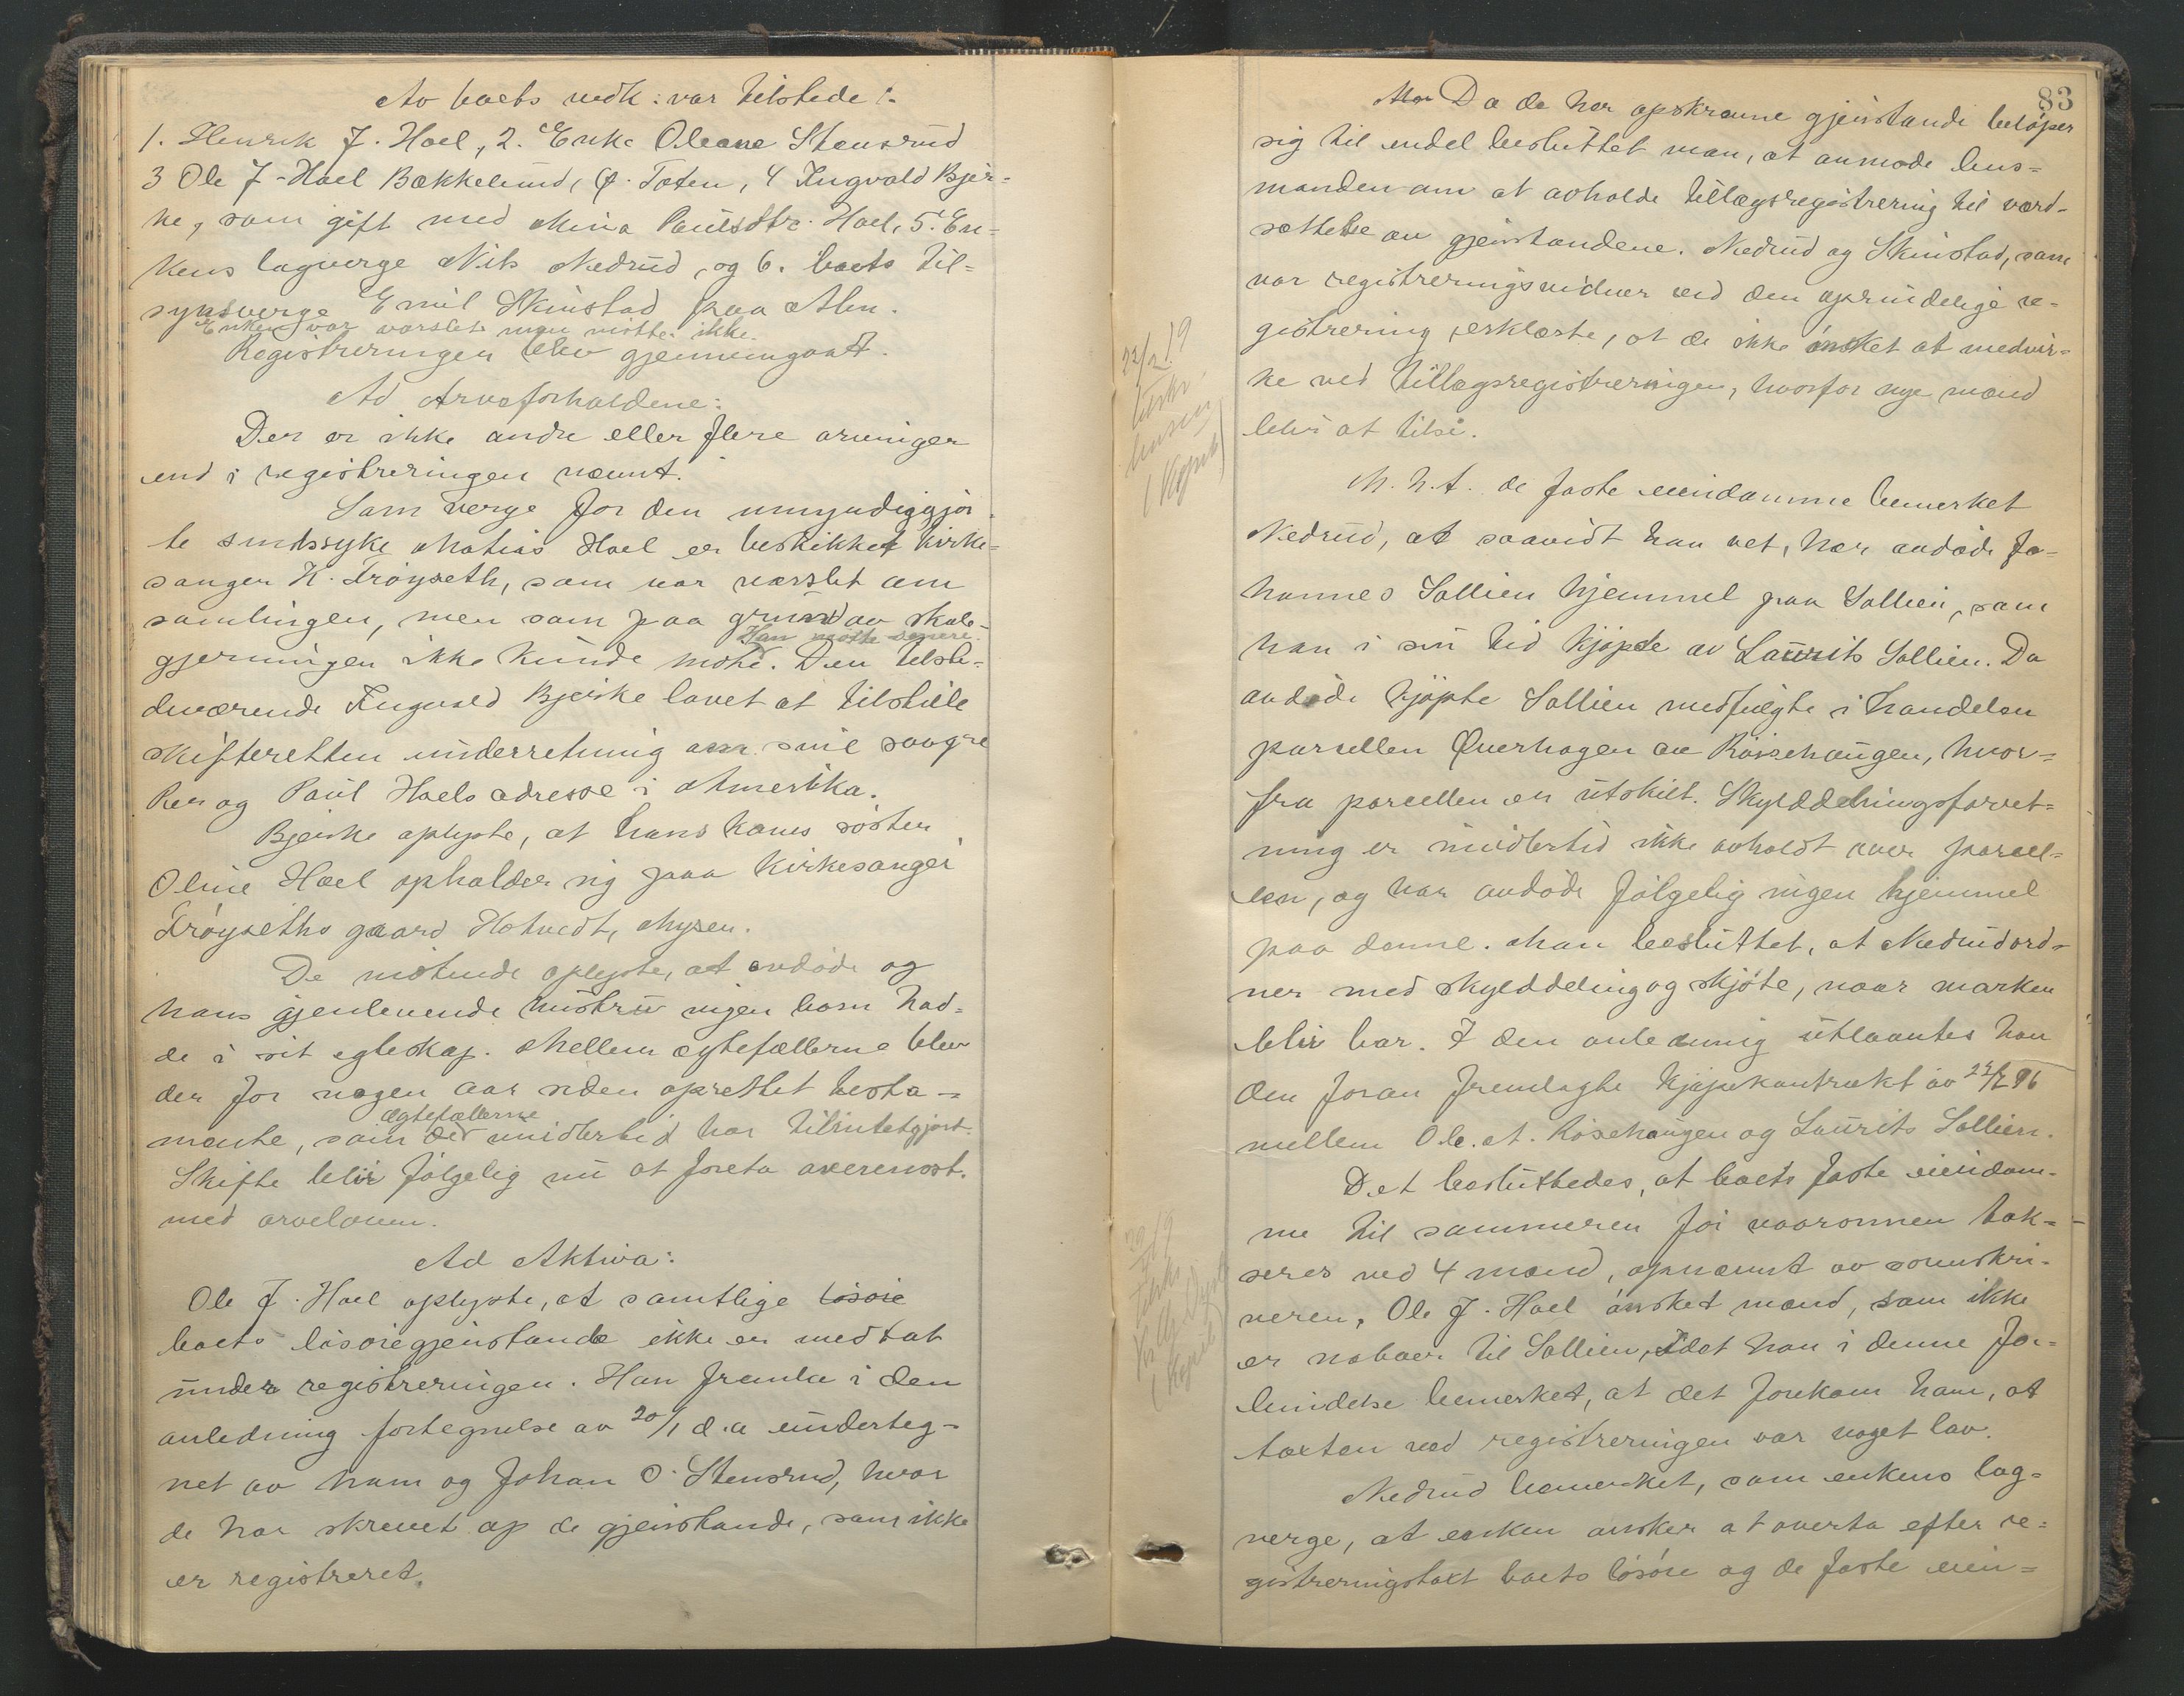 Av boets vedk: var tilstede:
1. Henrik J. Hoel, 2. Enke Oleane Stensrud
3 Ole J. Hoel Bækkelund, Ø. Toten, 4 Ingvald Bjer-
ke, som gift med Mina Paulsdtr. Hoel, 5. En-
kens lagverge Nils Nedrud, og 6. boets til-
synsverge Emil Skinstad paa Alm.
Enken var varslet men møtte ikke.
Registreringen blev gjennemgaat.
Ad Arveforholdene:
Der er ikke andre eller flere arvinger
end i registreringen nævnt.
Som verge for den umyndiggjor-
te sindssyke Matias Hoel er beskikket kirke-
sanger K. Trøyseth, som var varslet om
samlingen, men som paa grund av skole-
Han møtte senere.
gjerningen ikke kunde møte. Den tilste-
deværende Ingvald Bjerke lovet at tilstille
skifteretten underretning om sine svogre
og Paul Hoels adresse i Amerika.
Bjerke oplyste, at hans kones søster
Oline Hoel opholder sig paa kirkesanger
Trøyseths gaard Hotvedt, Mysen.
De møtende oplyste, at avdøde og
hans gjenlevende hustru ingen barn had-
de i sit egteskap. Mellem egtefællerne blev
der for nogen aar siden oprettet testa-
ægtefællerne
mente, som de imidlertid har tilintetgjort.
Skifte blir følgelig nu at foreta overensst.
med arveloven.
Ad Aktiva:
Ole J. Hoel oplyste, at samtlige løsøre
boets løsøregjenstande ikke er medtat
under registreringen. Han fremla i den
anledning fortegnelse av 20/1 d.a underteg-
net av ham og Johan O. Stensrud, hvor
de har skrevet op de gjenstande, som ikke
er registreret.
83
Da de her opskrevne gjenstande beløper
sig til endel besluttet man, at anmode lens-
manden om at avholde tillægsregistrering til værd-
sættelse av gjenstandene. Nedrud og Skinstad, som
var registreringsvidner ved den oprindelige re-
gistrering, erklærte, at de ikke ønsket at medvir-
ke ved tillægsregistreringen, hvorfor nye mænd
blir at tilsi.
M.h.t. de faste eiendomme bemerket
Nedrud, at saavidt han vet, har avdøde Jo-
hannes Sollien hjemmel paa Sollien, som
han i sin tid kjøpte av Laurits Sollien. Da
avdøde kjøpte Sollien medfulgte i handelen
parsellen Øverhagen av Røisehaugen, hvor-
fra parsellen er utskilt. Skylddelingsforret-
ning er imidlertid ikke avholdt over parsel-
len, og har avdøde følgelig ingen hjemmel
paa denne. Man besluttet, at Nedrud ord-
ner med skylddeling og skjøte, naar marken
blir bar. I den anledning utlaantes han
den foran fremlagte kjøpekontrakt av
mellem Ole A. Røsehaugen og Laurits Sollien.
Det besluttedes, at boets faste eiendom-
me til sommeren før vaaronnen tak-
seres ved 4 mænd, opnævnt av sorenskri-
veren. Ole J. Hoel ønsket mænd, som ikke
er naboer til Sollien, idet han i denne for-
bindelse bemerket, at det forekom ham, at
taxten ved registreringen var noget lav.
Nedrud bemerket, som enkens lag-
verge, at enken ønsker at overta efter re-
gistreringstakt boets løsøre og de faste eien-